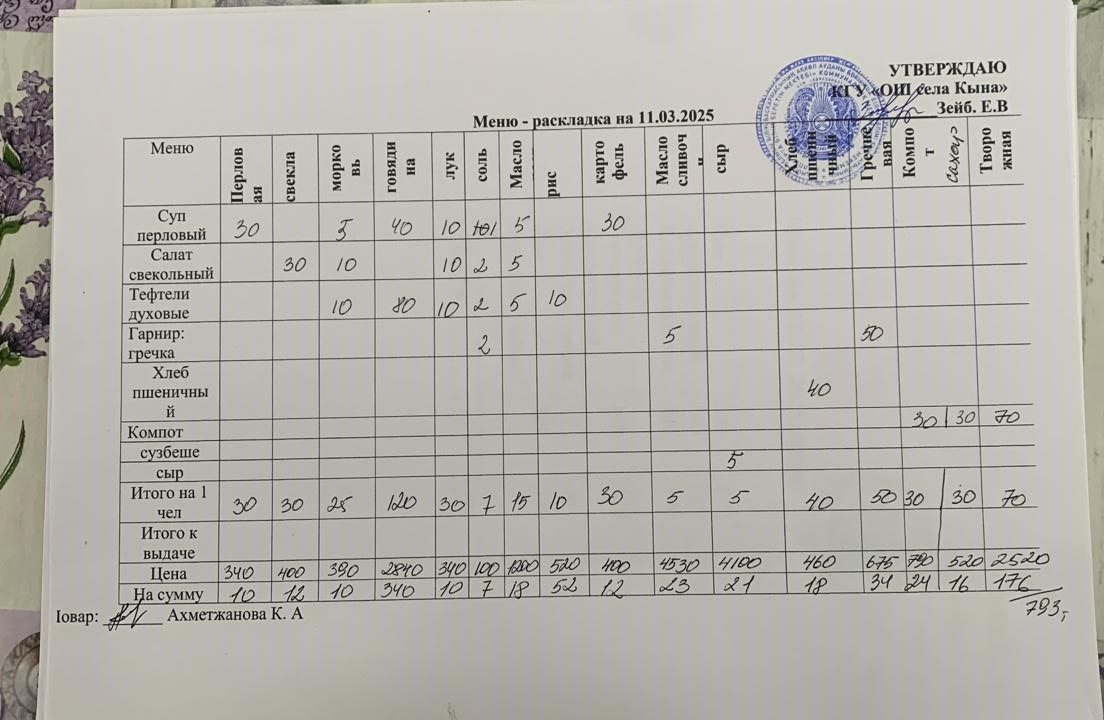 УТВЕРЖДАЮ
КГУ «ОШ села Кына»
Зейб. Е.В
Меню - раскладка на 11.03.2025
Меню Перловая свекла морковь говядина лук соль Масло рис картофель Масло сливоч сыр Хлеб пшеничный Гречневая Компот сахар Творожная
Суп перловый 30 5 40 10 1 5 30
Салат свекольный 30 10 10 2 5
Тефтели духовые 10 80 10 2 5 10
Гарнир: гречка 2 5 50
Хлеб пшеничный 40
Компот 30 30 70
сузбеше
сыр 5
Итого на 1 чел 30 30 25 120 30 7 15 10 30 5 5 40 50 30 30 70
Итого к выдаче
Цена 340 400 390 2840 340 100 1200 520 400 4530 4100 460 675 790 520 2520
На сумму 10 12 10 340 10 7 18 52 12 23 21 18 34 24 16 176
793,-
Повар: Ахметжанова К. А